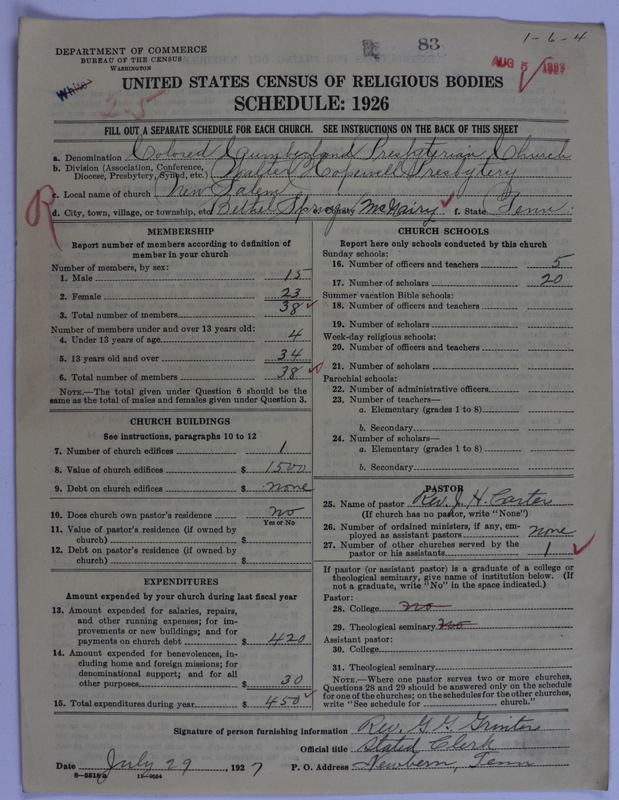 1-6-4
83
DEPARTMENT OF COMMERCE
BUREAU OF THE CENSUS
WASHINGTON
AUG 5 1927
White
2-5
UNITED STATES CENSUS OF RELIGIOUS BODIES
SCHEDULE: 1926
FILL OUT A SEPARATE SCHEDULE FOR EACH CHURCH. SEE INSTRUCTIONS ON THE BACK OF THIS SHEET
a. Denomination Colored Cumberland Presbyterian Church
b. Division (Association, Conference, Diocese, Presbytery, Synod, etc.) Hopewell Presbytery
c. Local name of church New Salem
d. City, town, village, or township, etc. Bethel Springs McNairy f. State Tenn.
R
MEMBERSHIP
Report number of members according to definition of
member in your church
Number of members, by sex:
1. Male 15
2. Female 23
3. Total number of members 38
Number of members under and over 13 years old:
4. Under 13 years of age 4
5. 13 years old and over 34
6. Total number of members 38
NOTE.—The total given under Question 6 should be the
same as the total of males and females given under Question 3.
CHURCH BUILDINGS
See instructions, paragraphs 10 to 12
7. Number of church edifices 1
8. Value of church edifices $ 1500
9. Debt on church edifices $ none
10. Does church own pastor's residence no
Yes or No
11. Value of pastor's residence (if owned by
church) $
12. Debt on pastor's residence (if owned by
church) $
EXPENDITURES
Amount expended by your church during last fiscal year
13. Amount expended for salaries, repairs,
and other running expenses; for im-
provements or new buildings; and for
payments on church debt $ 420
14. Amount expended for benevolences, in-
cluding home and foreign missions; for
denominational support; and for all
other purposes $ 30
15. Total expenditures during year $ 450
CHURCH SCHOOLS
Report here only schools conducted by this church
Sunday schools:
16. Number of officers and teachers 5
17. Number of scholars 20
Summer vacation Bible schools:
18. Number of officers and teachers
19. Number of scholars
Week-day religious schools:
20. Number of officers and teachers
21. Number of scholars
Parochial schools:
22. Number of administrative officers
23. Number of teachers—
a. Elementary (grades 1 to 8)
b. Secondary
24. Number of scholars—
a. Elementary (grades 1 to 8)
b. Secondary
PASTOR
25. Name of pastor Rev. J. H. Carter
(If church has no pastor, write "None")
26. Number of ordained ministers, if any, em-
ployed as assistant pastors none
27. Number of other churches served by the
pastor or his assistants 1
If pastor (or assistant pastor) is a graduate of a college or
theological seminary, give name of institution below. (If
not a graduate, write "No" in the space indicated.)
Pastor:
28. College no
29. Theological seminary no
Assistant pastor:
30. College
31. Theological seminary
NOTE.—Where one pastor serves two or more churches,
Questions 28 and 29 should be answered only on the schedule
for one of the churches; on the schedules for the other churches,
write "See schedule for church."
Signature of person furnishing information Rev. G. G. Grinter
Official title Stated Clerk
Date July 29, 1927 P. O. Address Newbern, Tenn
8-5518a 11-9684